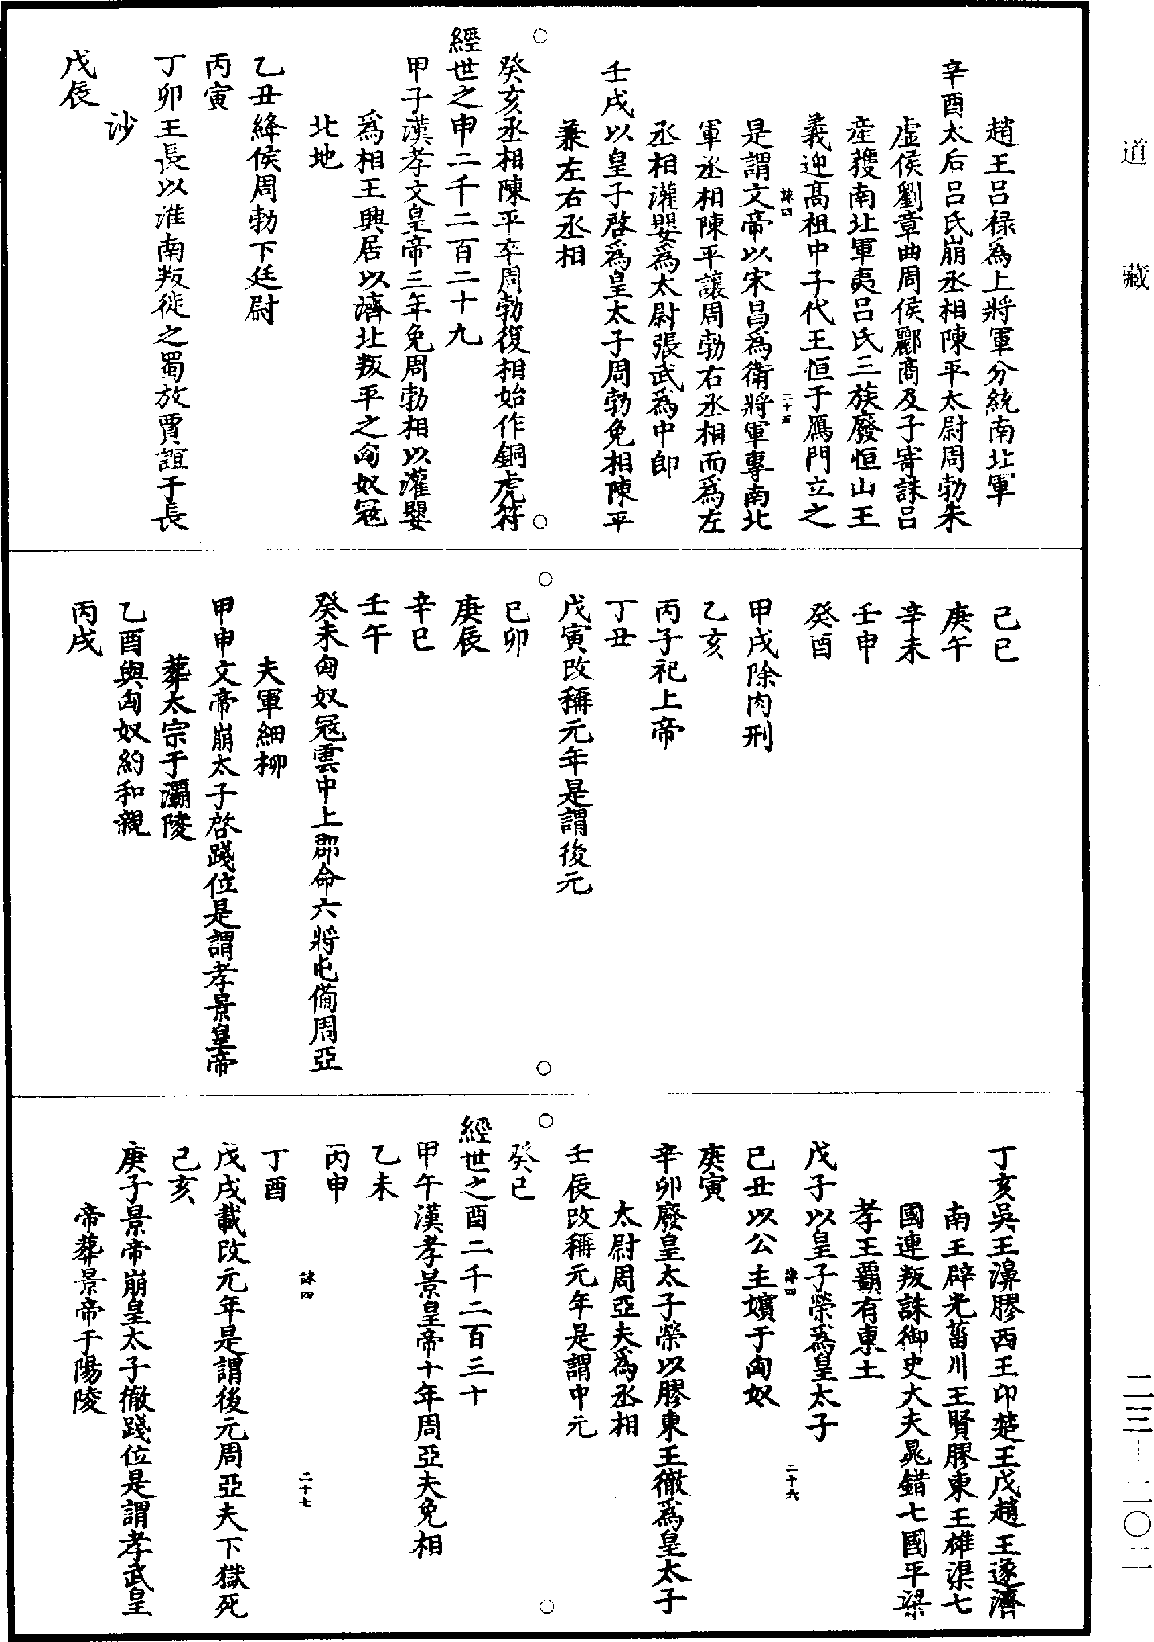 道藏
趙王呂祿爲上將軍分統南北軍
辛酉太后呂氏崩丞相陳平太尉周勃朱
虛侯劉章曲周侯酈商及子寄誅呂
産攫南北軍夷呂氏三族廢恒山王
義迎髙祖中子代王恒于鴈門立之
是謂文帝以宋昌爲衛將軍專南北
軍丞相陳平讓周勃右丞相而爲左
丞相灌嬰爲太尉張武爲中郎
壬戌以皇子啓爲皇太子周勃免相陳平
兼左右丞相
癸亥丞相陳平卒周勃復相始作銅虎符
經世之申二千二百二十九
甲子漢孝文皇帝三年免周勃相以灌嬰
爲相王興居以濟北叛平之匈奴寇
北地
乙丑絳侯周勃下廷尉
丙寅
丁卯王長以淮南叛徙之蜀放賈誼于長
沙
戊辰
己巳
庚午
辛未
壬申
癸酉
甲戌除肉刑
乙亥
丙子祀上帝
丁丑
戊寅改稱元年是謂後元
己卯
庚辰
辛巳
壬午
癸未匈奴寇雲中上郡命六將屯備周亞
夫軍細柳
甲申文帝崩太子啓踐位是謂孝景皇帝
葬太宗于灞陵
乙酉與匈奴約和親
丙戌
丁亥吳王濞膠西王卬楚王戊趙王遂濟
南王辟光菑川王賢膠東王雄渠七
國連叛誅御史大夫晁錯七國平梁
孝王霸有東土
戊子以皇子榮爲皇太子
己丑以公主嬪于匈奴
庚寅
辛卯廢皇太子榮以膠東王徹爲皇太子
太尉周亞夫爲丞相
壬辰改稱元年是謂中元
癸巳
經世之酉二千二百三十
甲午漢孝景皇帝十年周亞夫免相
乙未
丙申
丁酉
戊戌載改元年是謂後元周亞夫下獄死
己亥
庚子景帝崩皇太子徹踐位是謂孝武皇
帝葬景帝于陽陵
詠四
二十五
詠四
二十六
詠四
二十七
二三—二〇二